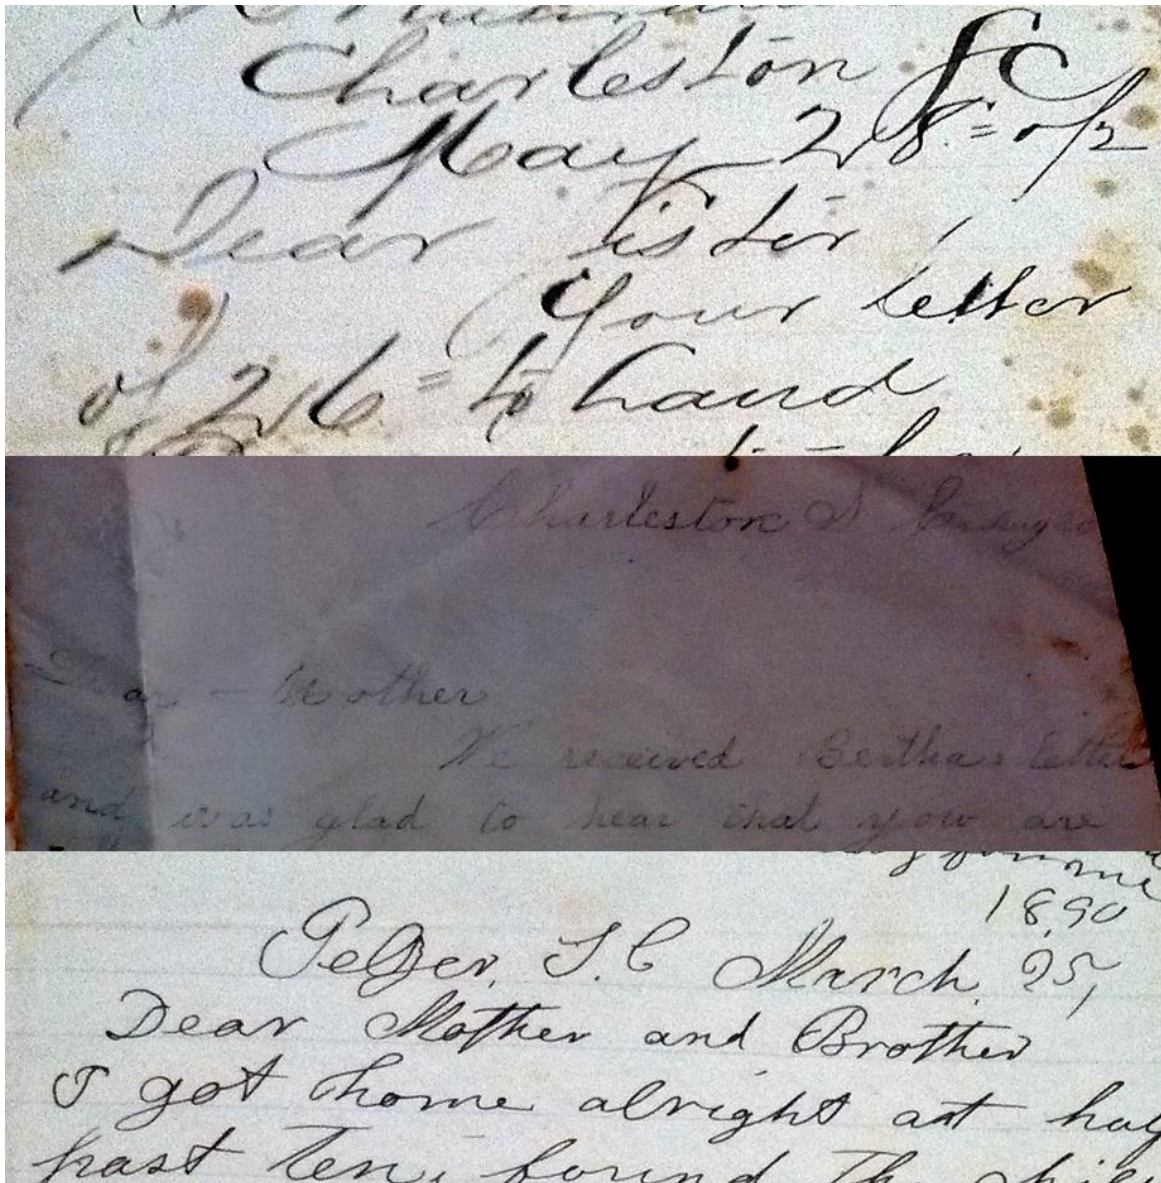 Charleston SC
May 28 = 92
Dear Sister,
Your letter
of 26 = to hand
Charleston S
Dear - Mother
We received Berthas letter
and was glad to hear that you are
me
1890
Pelzer, S.C March, 25,
Dear Mother and Brother
I got home alright at half
past Ten, found the